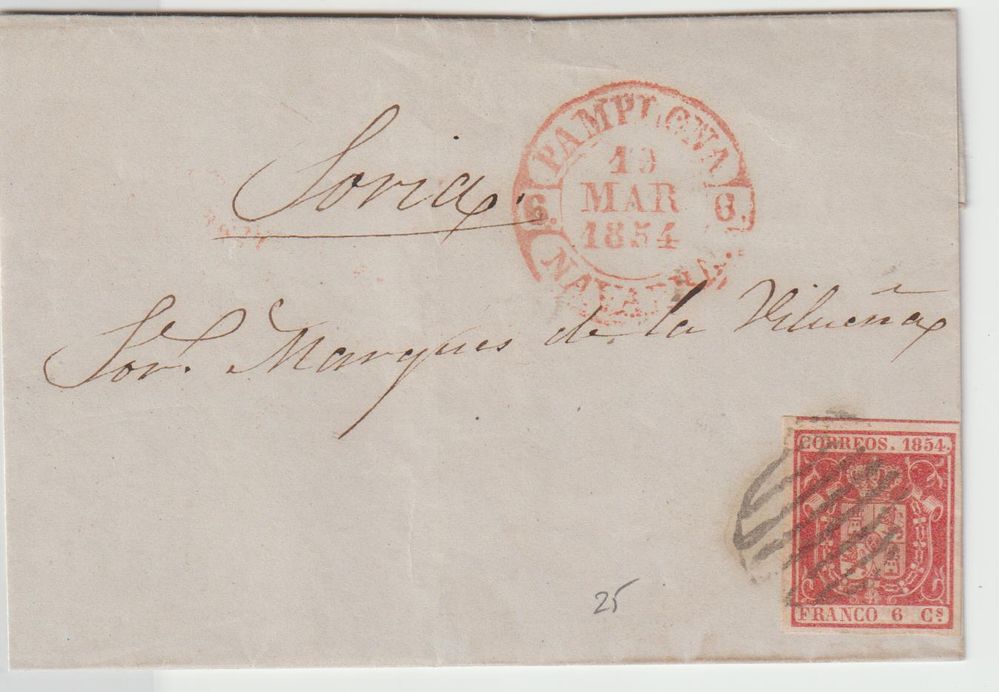 Soria.
PAMPLONA
19
MAR
1854
6. 6.
NAVARRA.
Sor. Marqués de la Vilueña
CORREOS. 1854.
FRANCO 6 Cs
25